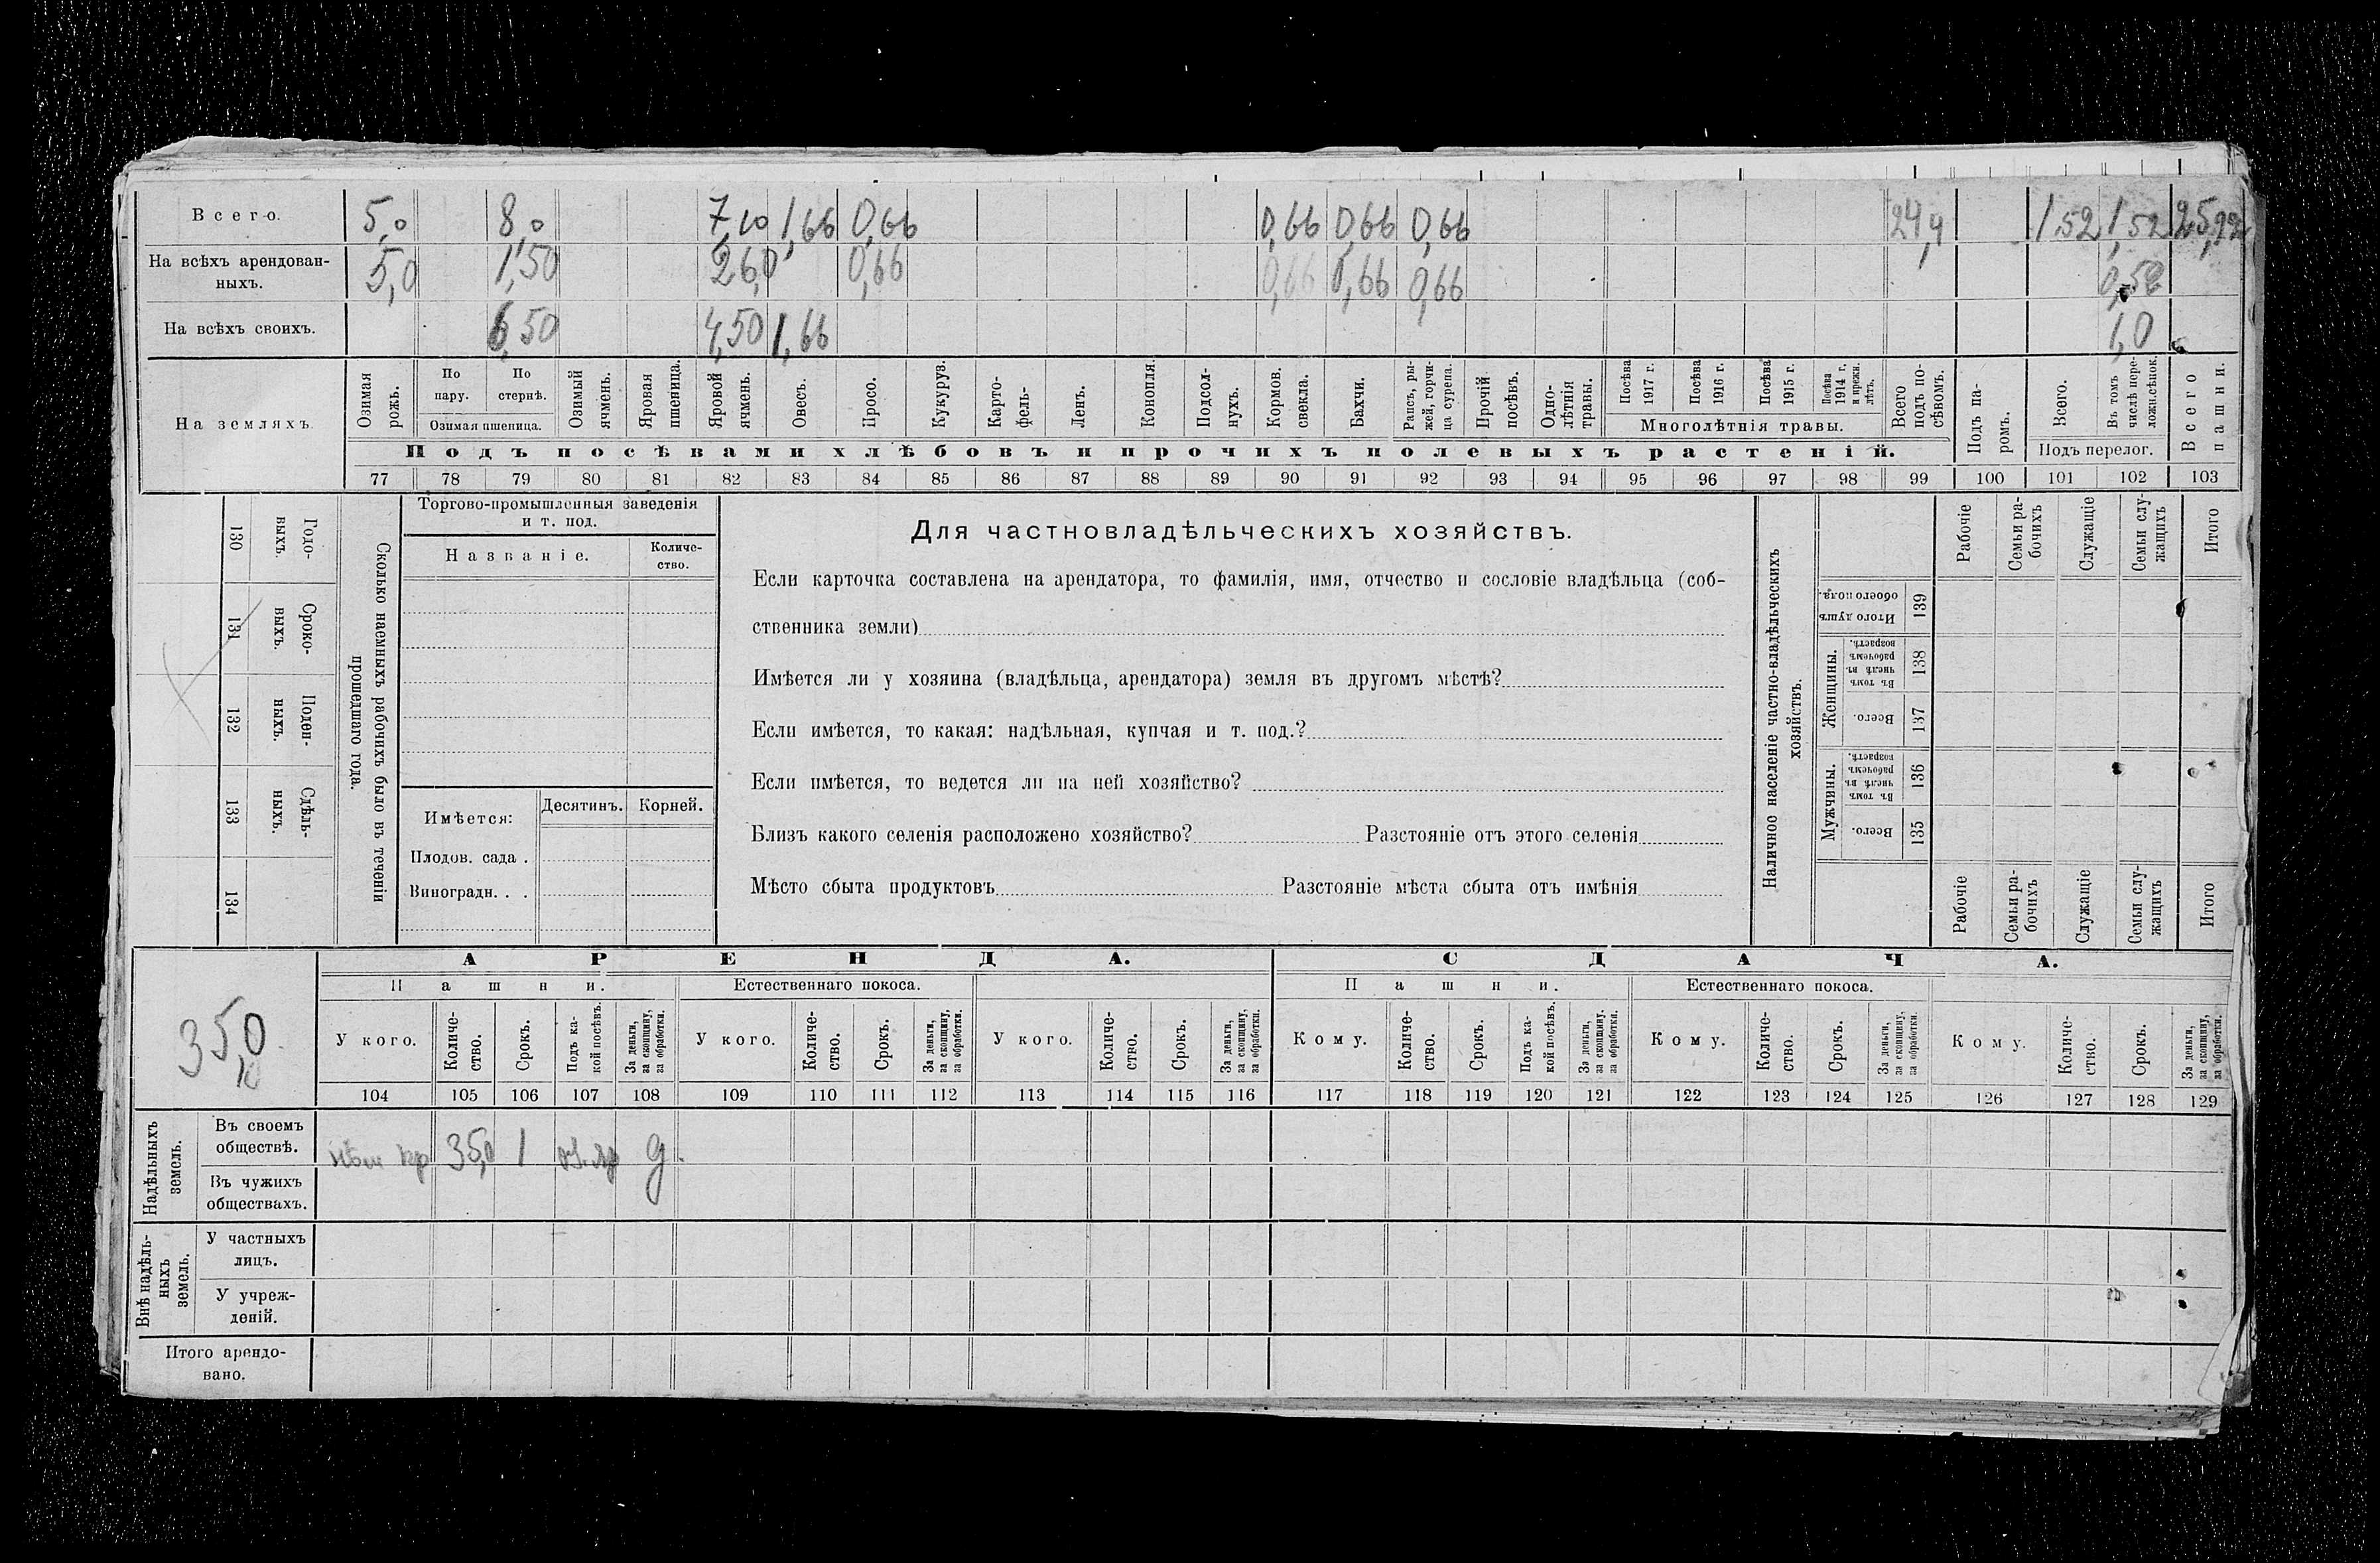 Всего. 5,0 8,0 7,10 1,66 0,66 0,66 0,66 0,66 24,4 1,52 1,52 25,92
На всѣхъ арендован-
ныхъ. 5,0 1,50 2,60 0,66 0,66 0,66 0,66 0,52
На всѣхъ своихъ. 6,50 4,50 1,66 1,0
На земляхъ
Озимая рожь.
По пару.
По стернѣ.
Озимая пшеница.
Озимый ячмень.
Яровая пшеница.
Яровой ячмень.
Овесъ.
Просо.
Кукуруз.
Карто-
фель-
Ленъ.
Конопля.
Подсол-
нухъ.
Кормов. свекла.
Бахчи.
Рапсъ, ры-
жей, горчи-
ца сурепа.
Прочій посѣвъ.
Одно-
лѣтнія травы.
Посѣва 1917 г.
Посѣва 1916 г.
Посѣва 1915 г.
Посѣва 1914 г. и прежн. лѣтъ.
Многолѣтнія травы.
Всего подъ по-
сѣвомъ.
Подъ па-
ромъ.
Всего.
Въ томъ числѣ пере-
ложн.сѣнок.
Подъ перелог.
Всего пашни.
Подъ посѣвами хлѣбовъ и прочихъ полевыхъ растеній.
77 78 79 80 81 82 83 84 85 86 87 88 89 90 91 92 93 94 95 96 97 98 99 100 101 102 103
Годо-
выхъ.
130
Сроко-
выхъ.
131
Поден-
ныхъ.
132
Сдѣль-
ныхъ.
133
134
Сколько наемныхъ рабочихъ было въ теченіи
прошедшаго года.
Торгово-промышленныя заведенія
и т. под.
Названіе.
Количе-
ство.
Имѣется:
Десятинъ. Корней.
Плодов. сада .
Виноградн. . .
Для частновладѣльческихъ хозяйствъ.
Если карточка составлена на арендатора, то фамилія, имя, отчество и сословіе владѣльца (соб-
ственника земли)
Имѣется ли у хозяина (владѣльца, арендатора) земля въ другомъ мѣстѣ?
Если имѣется, то какая: надѣльная, купчая и т. под.?
Если имѣется, то ведется ли на ней хозяйство?
Близъ какого селенія расположено хозяйство? Разстояніе отъ этого селенія
Мѣсто сбыта продуктовъ Разстояніе мѣста сбыта отъ имѣнія
Наличное населеніе частно-владѣльческихъ
хозяйствъ.
Рабочіе
Семьи ра-
бочихъ
Служащіе
Семьи слу-
жащихъ
Итого
Итого душъ обоего пола.
139
Женщины.
Въ томъ числѣ въ рабочемъ возрастѣ.
138
Всего.
137
Мужчины.
Въ томъ числѣ въ рабочемъ возрастѣ.
136
Всего.
135
Рабочіе
Семьи ра-
бочихъ
Служащіе
Семьи слу-
жащихъ
Итого
35,0
АРЕНДА. СДАЧА.
Пашни. Естественнаго покоса. Пашни. Естественнаго покоса.
У кого.
Количе-
ство.
Срокъ.
Подъ ка-
кой посѣвъ.
За деньги,
за скопщину,
за обработки.
У кого.
Количе-
ство.
Срокъ.
За деньги,
за скопщину,
за обработки.
У кого.
Количе-
ство.
Срокъ.
За деньги,
за скопщину,
за обработки.
Кому.
Количе-
ство.
Срокъ.
Подъ ка-
кой посѣвъ.
За деньги,
за скопщину.
за обработки.
Кому.
Количе-
ство.
Срокъ.
За деньги,
за скопщину,
за обработки.
Кому.
Количе-
ство.
Срокъ.
За деньги,
за скопщину,
за обработки.
104 105 106 107 108 109 110 111 112 113 114 115 116 117 118 119 120 121 122 123 124 125 126 127 128 129
Надѣльныхъ
земель.
Въ своемъ
обществѣ.
35,0 1 д.
Въ чужихъ
обществахъ.
Внѣ надѣль-
ныхъ
земель.
У частныхъ
лицъ.
У учреж-
деній.
Итого арендо-
вано.